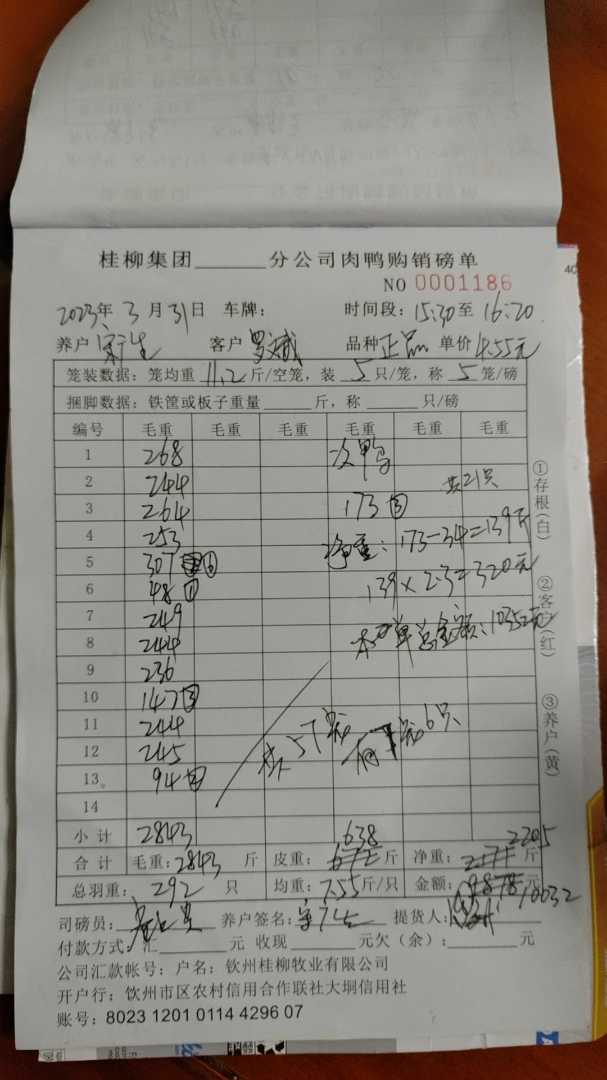 桂柳集团______分公司肉鸭购销磅单
NO 0001186
2023年 3月31日 车牌: 时间段:15:30至16:20
养户 客户 罗斌 品种正品 单价4.55元
笼装数据:笼均重 11.2 斤/空笼,装 5 只/笼,称 5 笼/磅
捆脚数据:铁筐或板子重量______斤,称______只/磅
编号 毛重 毛重 毛重 毛重 毛重 毛重
1 268 次鸭
2 244 共21只
3 264 173 ③
4 253 净重:173-34=139斤
5 307 ⑥
6 48 ① 139×2.3=320元
7 249
8 244 本单总金额:10352元
9 236
10 147 ③
11 244 57笼 6只
12 245
13 94 ②
14
小计 2843 638 2205
合计 毛重:2843 斤 皮重: 斤 净重: 斤
总羽重: 292 只 均重:7.55斤/只 金额:9878元 10032
司磅员: 养户签名: 提货人:
付款方式:汇______元 收现______元欠(余):______元
公司汇款帐号:户名:钦州桂柳牧业有限公司
开户行:钦州市区农村信用合作联社大垌信用社
账号:8023 1201 0114 4296 07
①存根(白)
②客户(红)
③养户(黄)